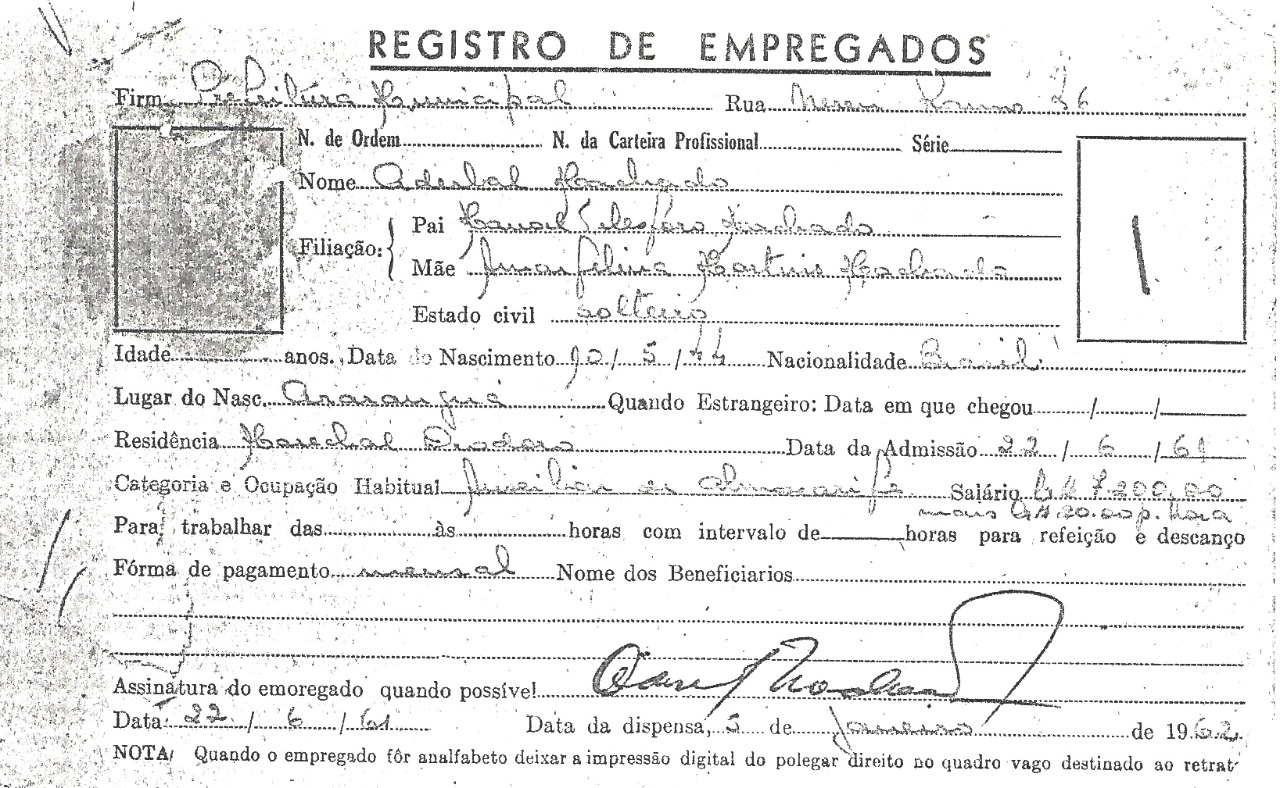 REGISTRO DE EMPREGADOS
Firm Prefeitura Municipal Rua 26
N. de Ordem N. da Carteira Profissional Série
Nome Aderbal Machado
Filiação:
Pi Manoel Telesforo Machado
Mãe Martins Machado
Estado civil solteiro
Idade anos. Data do Nascimento / 5 / 44 Nacionalidade Brasil
Lugar do Nasc. Araranguá Quando Estrangeiro: Data em que chegou / /
Residência Marechal Deodoro Data da Admissão 22 / 6 / 61
Categoria e Ocupação Habitual Auxiliar de Almoxarife Salário Cr$ 7.200,00
mais Cr$ 20.00 p. hora
Para trabalhar das às horas com intervalo de horas para refeição e descanço
Fórma de pagamento mensal Nome dos Beneficiarios
Assinatura do emoregado quando possível
Data 22 / 6 / 61 Data da dispensa, 5 de Janeiro de 1962
NOTA Quando o empregado fôr analfabeto deixar a impressão digital do polegar direito no quadro vago destinado ao retrat